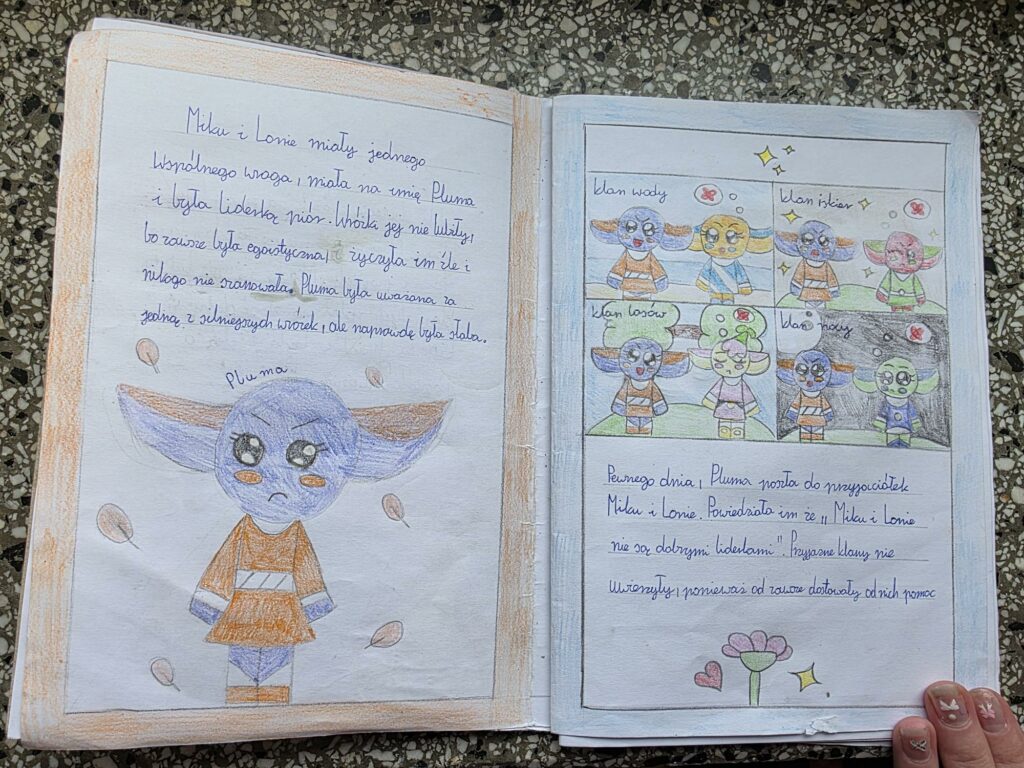 Miku i Lonie miały jednego
Wspólnego wroga, miała na imię Pluma
i była liderką piór. Wróżki jej nie lubiły,
bo zawsze była egoistyczna, i życzyła im źle i
nikogo nie szanowała. Pluma była uważana za
jedną z silniejszych wróżek, ale naprawdę była słaba.
Pluma
klan wody
klan iskier
klan lasów
klan nocy
Pewnego dnia, Pluma poszła do przyjaciółek
Miku i Lonie. Powiedziała im że „Miku i Lonie
nie są dobrymi liderkami". Przyjazne klany nie
uwierzyły, ponieważ od zawsze dostawały od nich pomoc